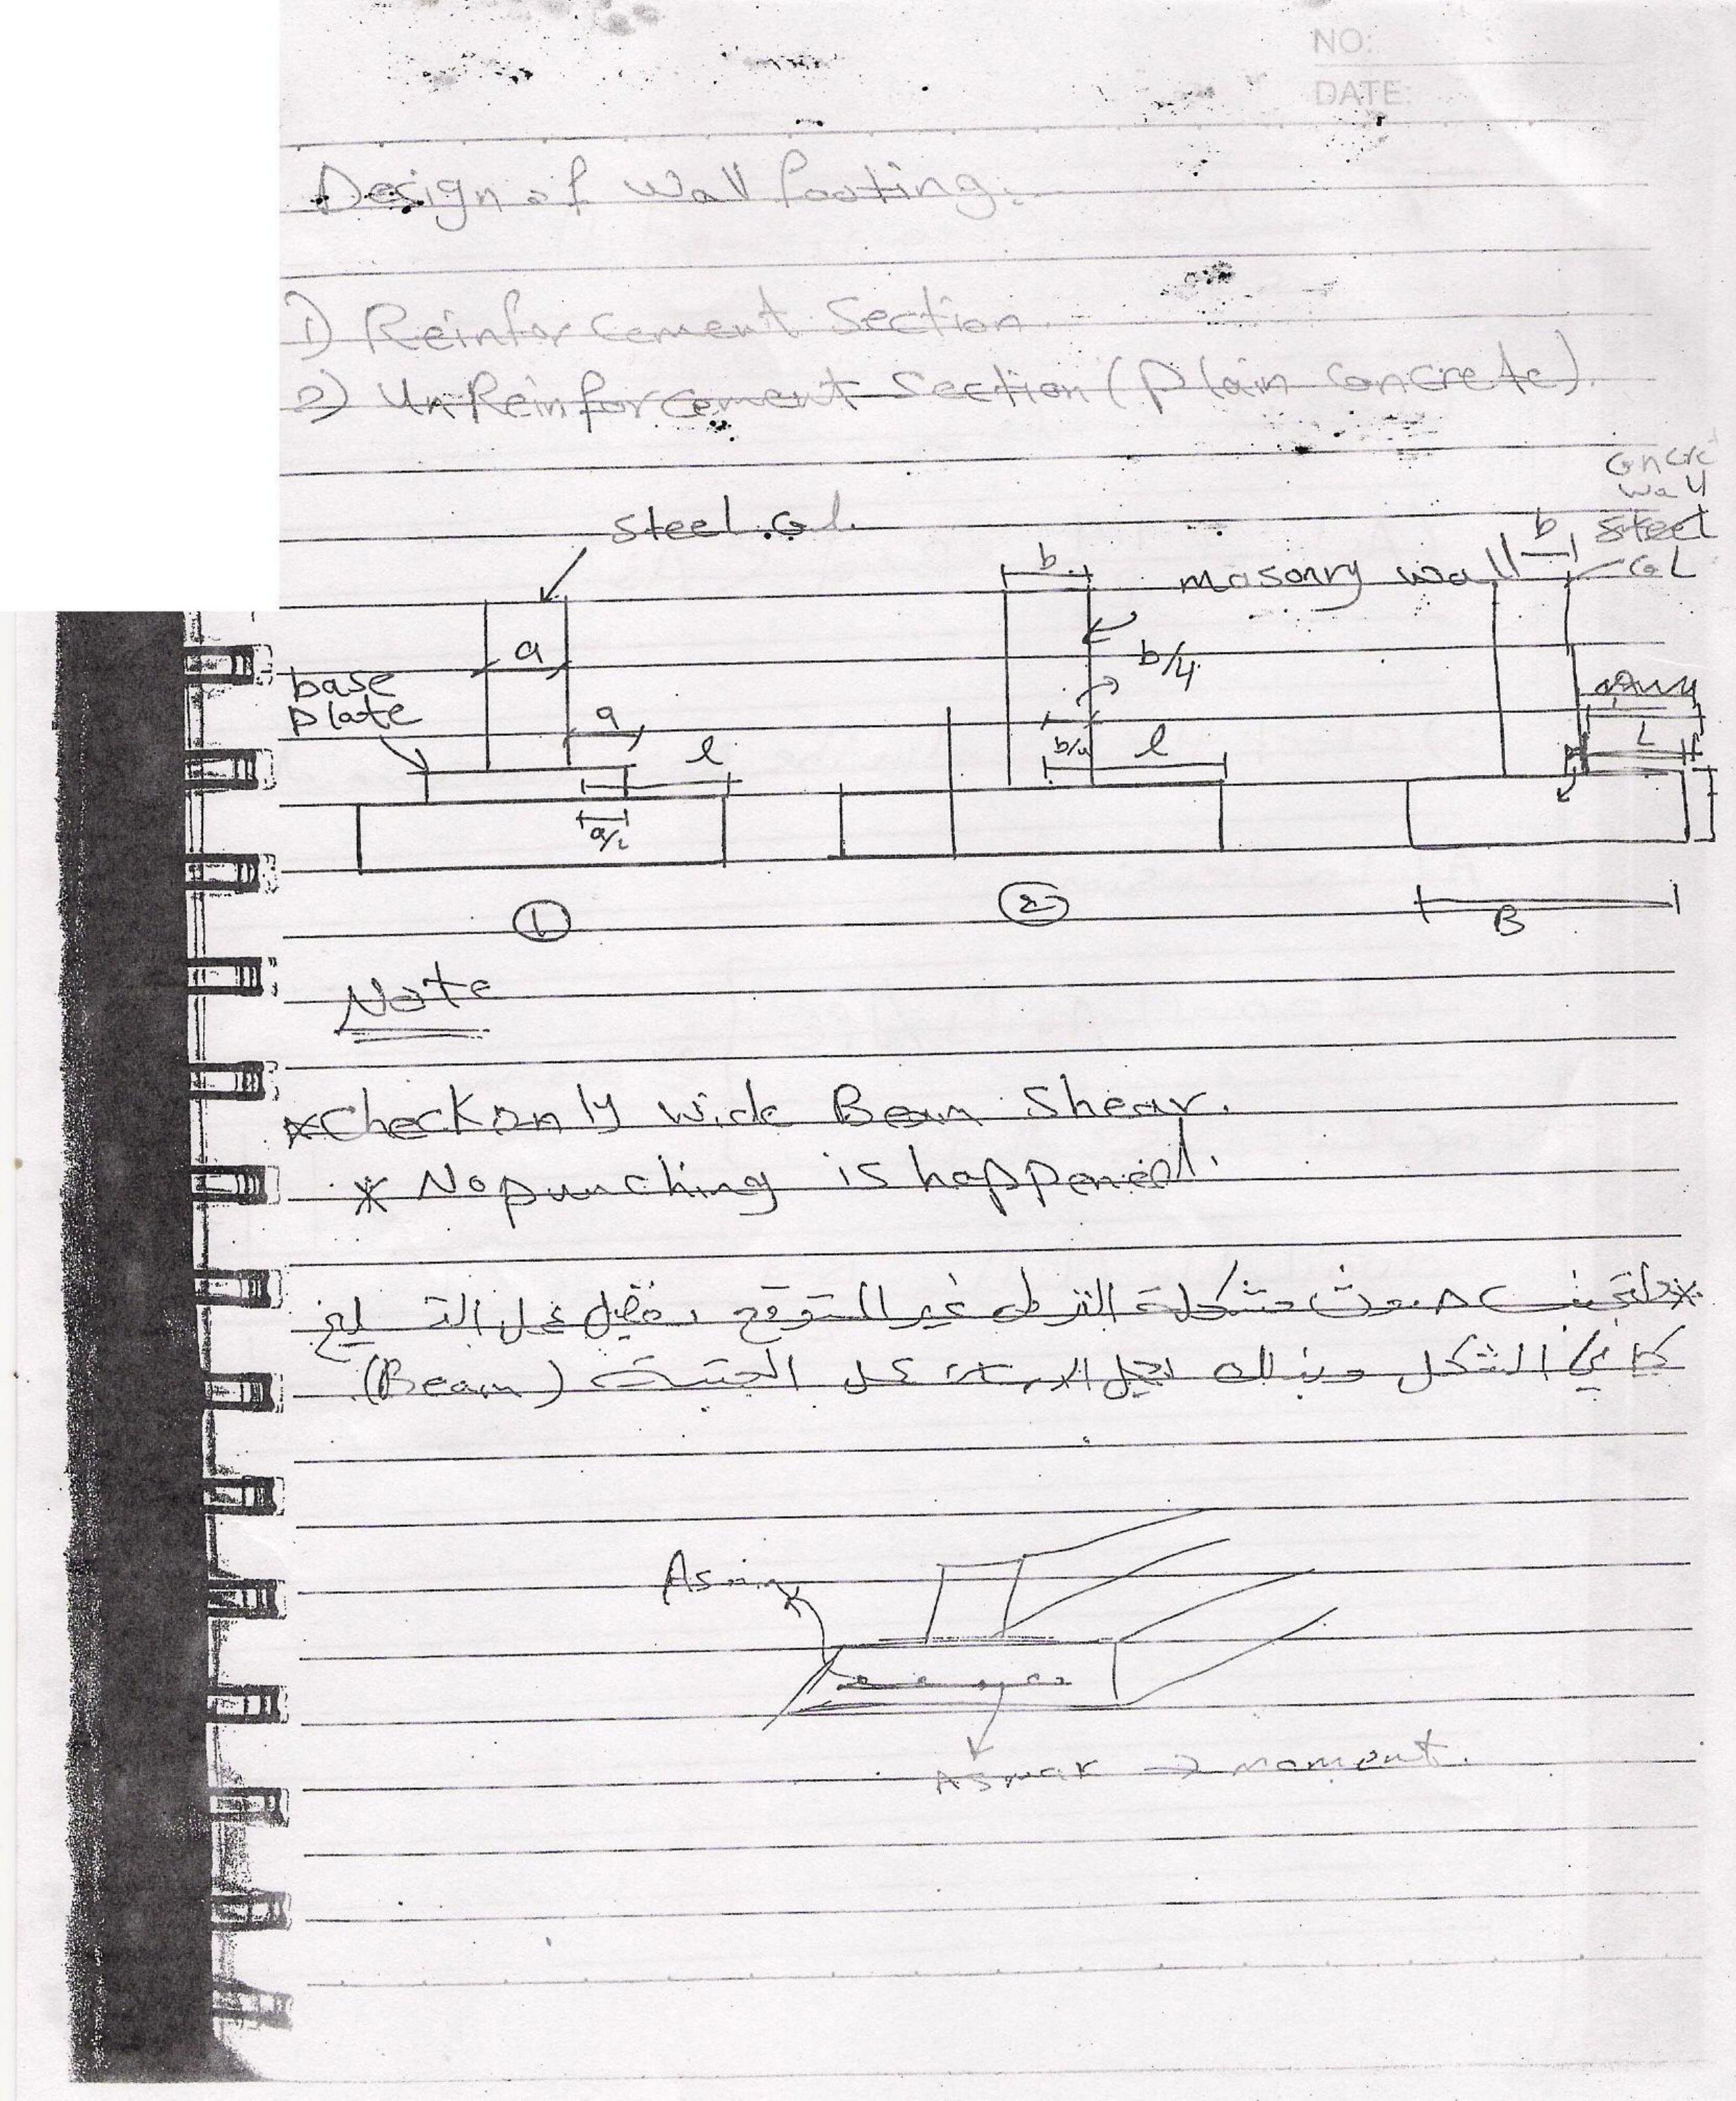 NO:
DATE:
Design of wall footing.
1) Reinforcement Section.
2) UnReinforcement Section (plain concrete).
Steel Col.
a
base
plate
a
l
a/2
b
masonry wall
b/4
b/4
l
wall
b
Steel
Col
L
B
1
2
Note
*Check only wide Beam Shear.
* No punching is happened.
* لتجنب حدوث مشكلة الغير المتوقع نفضل عمل
كما في الشكل وبذلك (Beam)
As min
As max → moment.